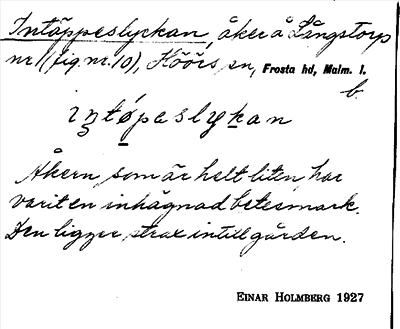 Intäppeslyckan, åker å Långstorp
nr 1 (fig. nr. 10), Höörs sn, Frosta hd, Malm. l.
b.
intøpaslykan
Åkern, som är helt liten, har
varit en inhägnad betesmark.
Den ligger strax intill gården.
EINAR HOLMBERG 1927